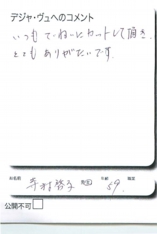 デジャ・ヴュへのコメント
いつも てーねーに カットして 頂き、
とても ありがたいです。
お名前 年齢 59. 職業
公開不可